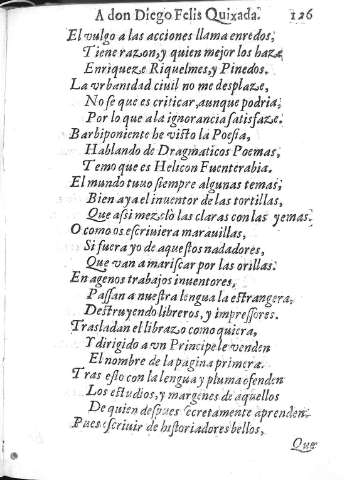 A don Diego Felis Quixada. 126
El vulgo a las acciones llama enredos,
Tiene razon, y quien mejor los haze
Enriqueze Riquelmes, y Pinedos.
La vrbanidad ciuil no me desplaze,
No se que es criticar, aunque podria,
Por lo que a la ignorancia satisfaze.
Barbiponiente he visto la Poesia,
Hablando de Dragmaticos Poemas,
Temo que es Helicon Fuenterabia.
El mundo tuuo siempre algunas temas,
Bien aya el inuentor de las tortillas,
Que assi mezclò las claras con las yemas.
O como os escriuiera marauillas,
Si fuera yo de aquestos nadadores,
Que van a mariscar por las orillas.
En agenos trabajos inuentores,
Passan a nuestra lengua la estrangera,
Destruyendo libreros, y impressores.
Trasladan el librazo como quiera,
Y dirigido a vn Principe le venden
El nombre de la pagina primera.
Tras esto con la lengua y pluma ofenden
Los estudios, y margenes de aquellos
De quien despues secretamente aprenden.
Pues escriuir de historiadores bellos,
Que